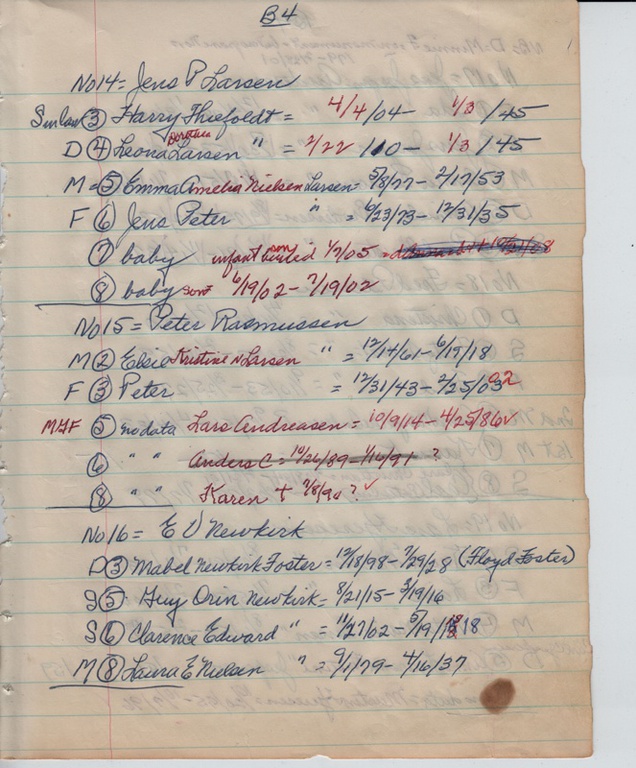 B4
No 14 = Jens P Larsen
Sin law ③ Harry Thiefoldt = 4/4/04 - 1/3/45
D ④ Leona Dorothea Larsen " = 2/22/10 - 1/3/45
M = ⑤ Emma Amelia Nielsen Larsen = 5/8/77 - 2/17/53
F ⑥ Jens Peter " = 6/23/73 - 12/31/35
⑦ baby infant son buried 1/7/05
⑧ baby son 6/19/02 - 7/19/02
No 15 = Peter Rasmussen
M ② Elsie Kristine N Larsen " = 12/14/61 - 6/17/18
F ③ Peter = 12/31/43 - 2/25/03 02
M4F ⑤ no data Lars Andreasen = 10/9/14 - 4/25/86 ✓
⑥ " " Anders C = 10/26/89 - 1/16/91 ?
⑧ " " Karen + 7/8/90 ? ✓
No 16 = E V Newkirk
D ③ Mabel Newkirk Foster = 12/18/98 - 7/29/28 (Floyd Foster)
S ⑤ Guy Orin Newkirk = 8/21/15 - 3/19/16
S ⑥ Clarence Edward " = 11/27/02 - 5/19/18 18
M ⑧ Laura E Nielsen " = 9/1/79 - 4/16/37